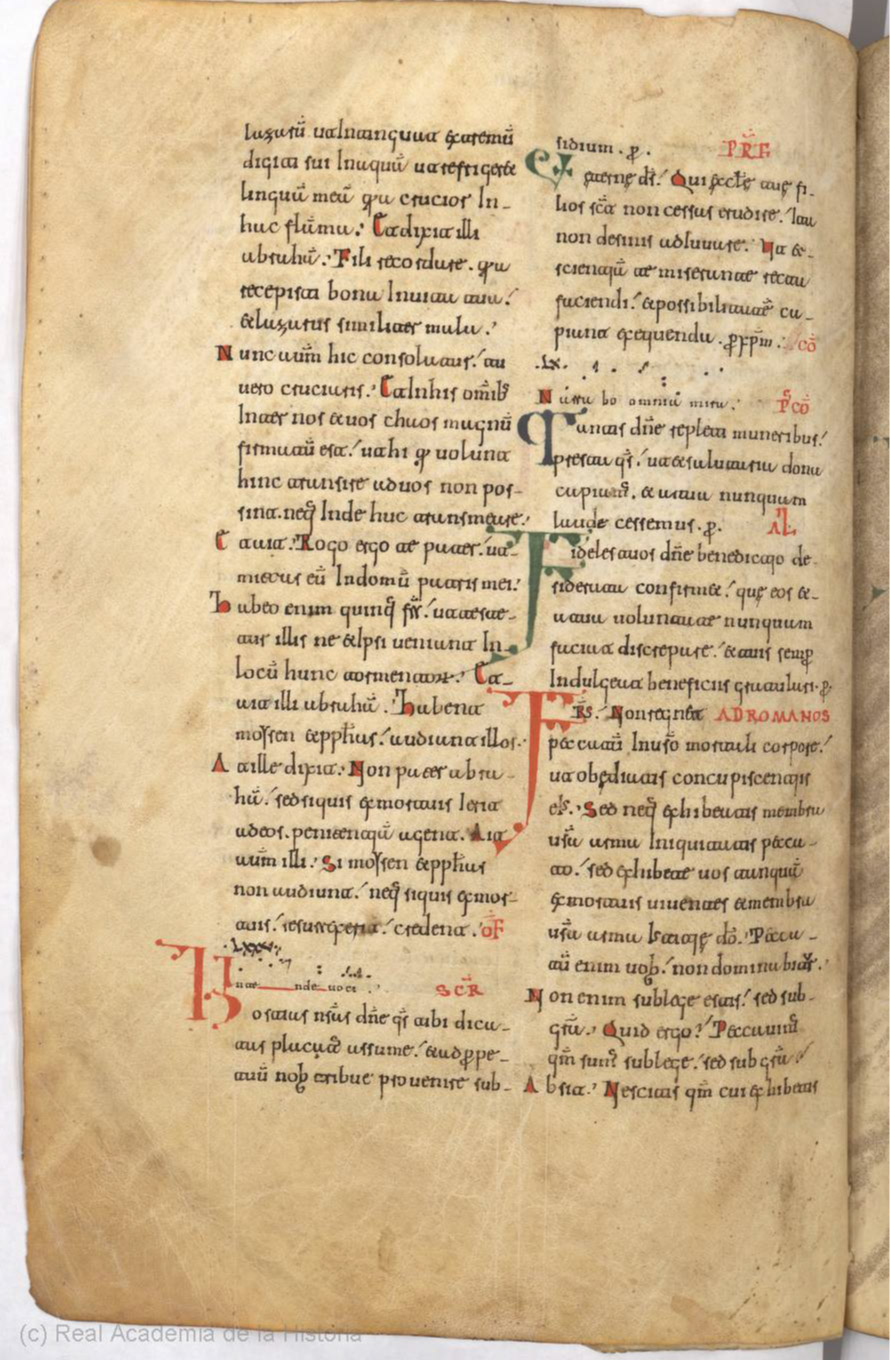 lazarũ ut intinguat extremũ
digiti sui In aquã ut refrigeret
linguã meã qa crucior In-
hac flãma. Et dixit illi
abrahã. Fili recordare. qa
recepisti bona In uita tua.
& lazarus similiter mala.
Nunc aũm hic consolatur. tu
uero cruciaris. Et In his omĩb;
Inter nos & uos chaos magnũ
firmatũ est. ut hi q uolunt
hinc transire ad uos non pos-
sint. neq; Inde huc transmeare.
Et ait. Rogo ergo te pater. ut
mittas eũ In domũ patris mei.
Habeo enim quinq; frs̃. ut teste-
tur illis ne & Ipsi ueniant In
locũ hunc Et
ait illi abrahã. Habent
moysen & pphas. audiant illos.
At ille dixit. Non pater abra-
hã. sed si quis ex mortuis Ierit
ad eos. penitentiã agent. Ait
aũm illi. Si moysen & pphas
non audiunt. neq; si quis ex mor-
tuis. resurrexerit. credent. OF̃
LXXV
SCR̃
Hostias nsãs dñe qs̃ tibi dica-
tas assume. & ad ppe-
tuũ nob tribue prouenire sub-
sidium. p. PRF̃
Eterne ds̃. Qui eccle tue fi-
lios scã non cessas erudire. &
non desinis adiuuare. Ut &
scientiã te miserante recta
faciendi. & possibilitatẽ ca-
piant exequendi. p xpm. CÕ
LX
PCÕ
Tantis dñe repleti muneribus.
presta qs̃. ut & salutaria dona
capiam. & a tua nunquam
laude cessemus. p. AL̃
Fideles tuos dñe benedictio de-
siderata confirmet. que eos &
a tua uoluntate nunquam
faciat discrepare. & tuis semp
Indulgeat beneficiis gratulari. p.
FRS̃. Non regnet AD ROMANOS
peccatũ In uso mortali corpore.
ut obediatis concupiscentiis
eis. Sed neq; exhibeatis membra
usã arma Iniquitatis pecca-
to. sed exhibete uos tanquã
ex mortuis uiuentes & membra
usã arma do. Pecca-
tũ enim uob. non dominabit.
Non enim sub lege estis. sed sub
grã. Quid ergo? Peccauim
qm sum sub lege. sed sub grã?
Absit. Nescitis qm cui exhibetis
(c) Real Academia de la Historia